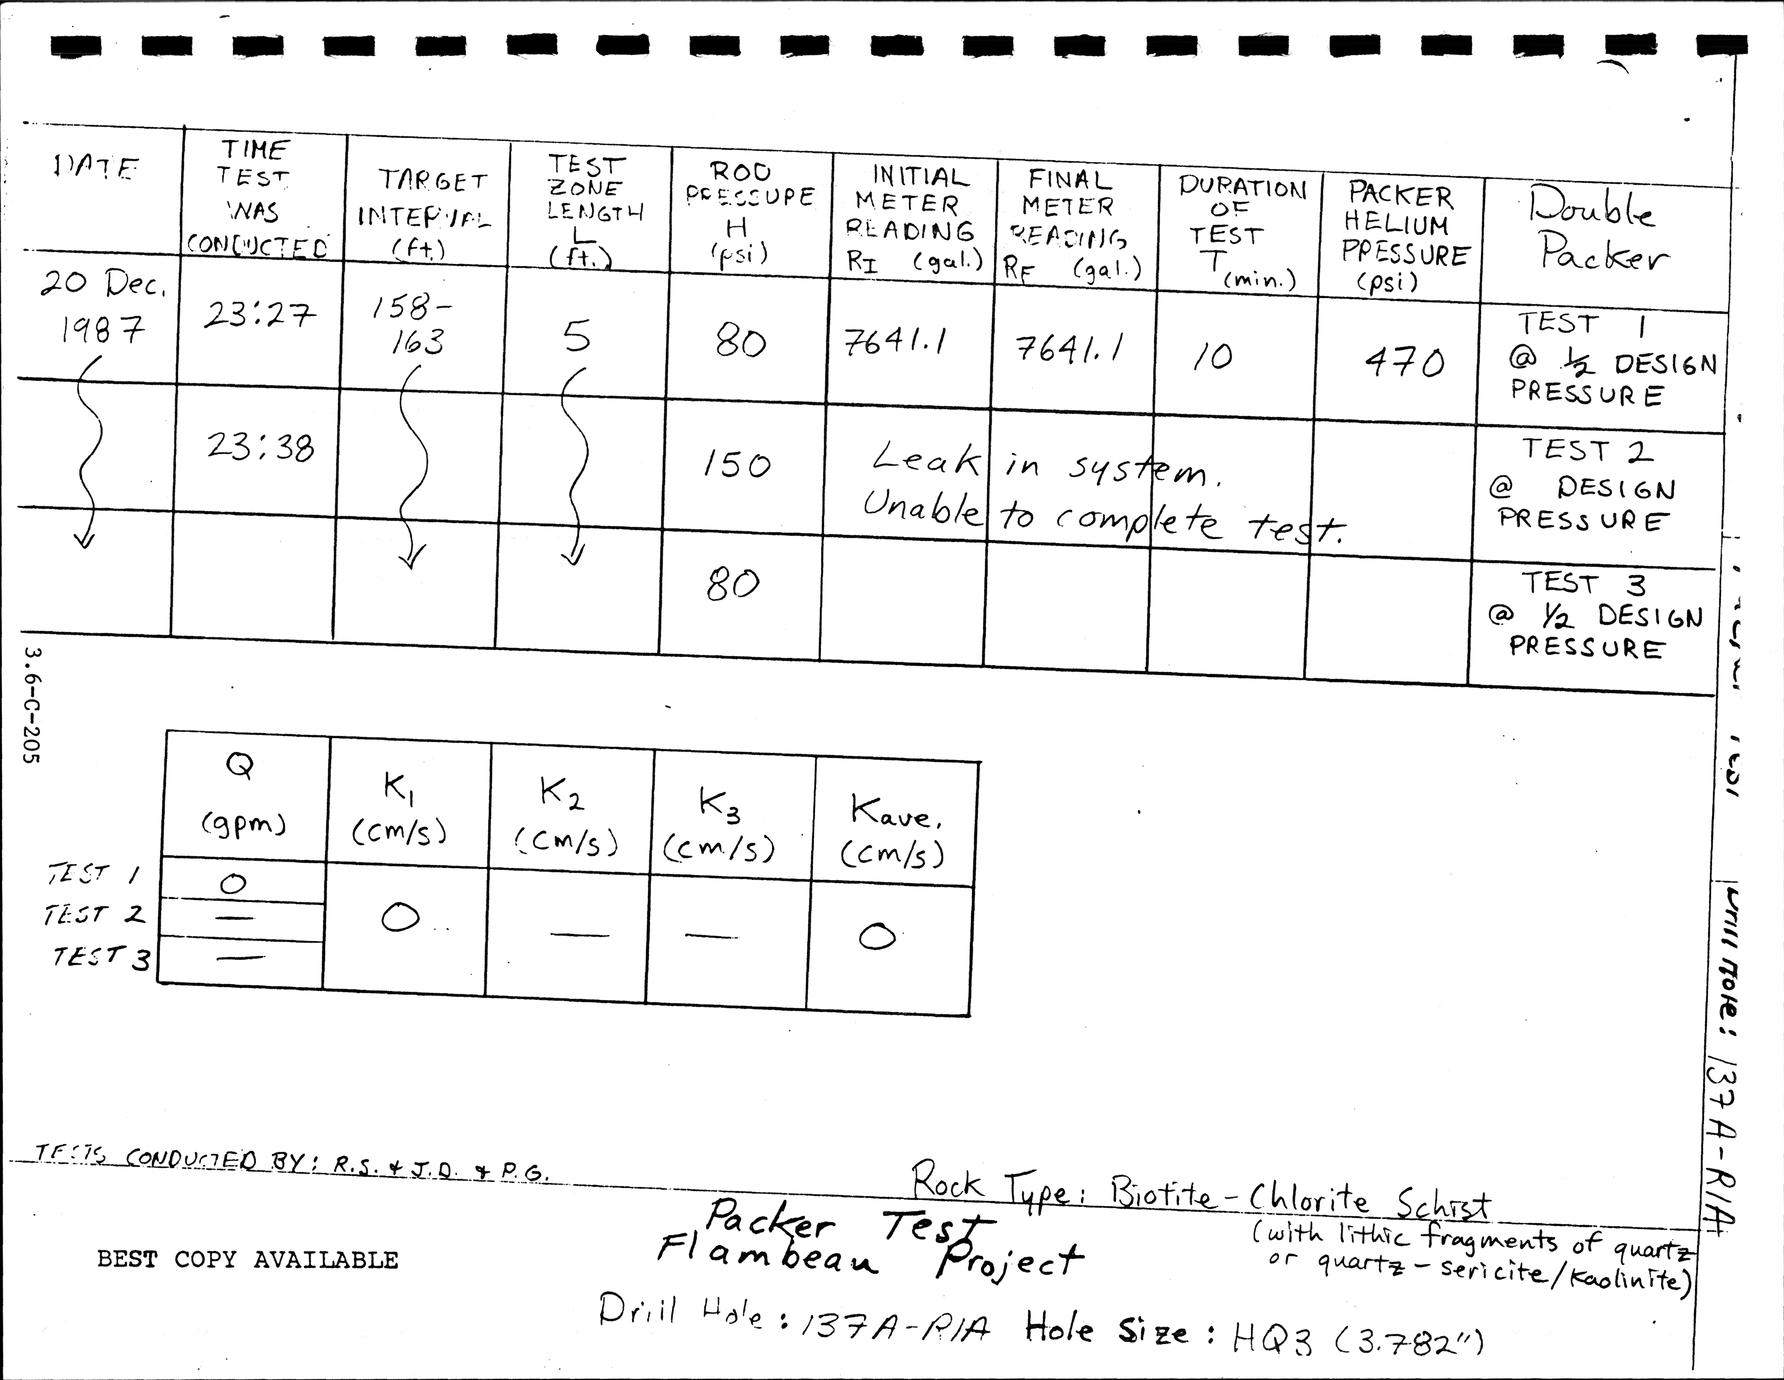 DATE
TIME
TEST
WAS
CONDUCTED
TARGET
INTERVAL
(ft.)
TEST
ZONE
LENGTH
L
(ft.)
ROD
PRESSURE
H
(psi)
INITIAL
METER
READING
RI (gal.)
FINAL
METER
READING
RF (gal.)
DURATION
OF
TEST
T (min.)
PACKER
HELIUM
PRESSURE
(psi)
Double
Packer
20 Dec.
1987
23:27
158-
163
5
80
7641.1
7641.1
10
470
TEST 1
@ 1/2 DESIGN
PRESSURE
23:38
150
Leak in system.
Unable to complete test.
TEST 2
@ DESIGN
PRESSURE
80
TEST 3
@ 1/2 DESIGN
PRESSURE
3.6-C-205
Q
(gpm)
K1
(cm/s)
K2
(cm/s)
K3
(cm/s)
Kave.
(cm/s)
TEST 1
O
TEST 2
—
O
—
—
O
TEST 3
—
Drill Hole: 137A-R1A
TESTS CONDUCTED BY: R.S. & J.D. & P.G.
Rock Type: Biotite-Chlorite Schist
(with lithic fragments of quartz
or quartz-sericite/kaolinite)
Packer Test
Flambeau Project
BEST COPY AVAILABLE
Drill Hole: 137A-R1A Hole Size: HQ3 (3.782")